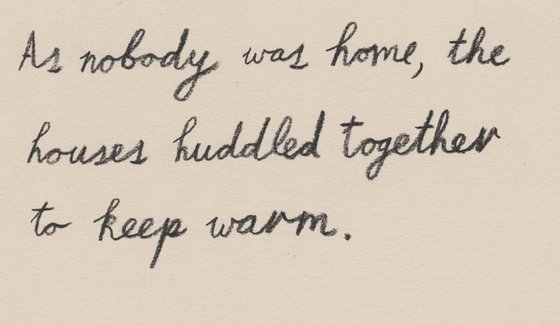 As nobody was home, the
houses huddled together
to keep warm.